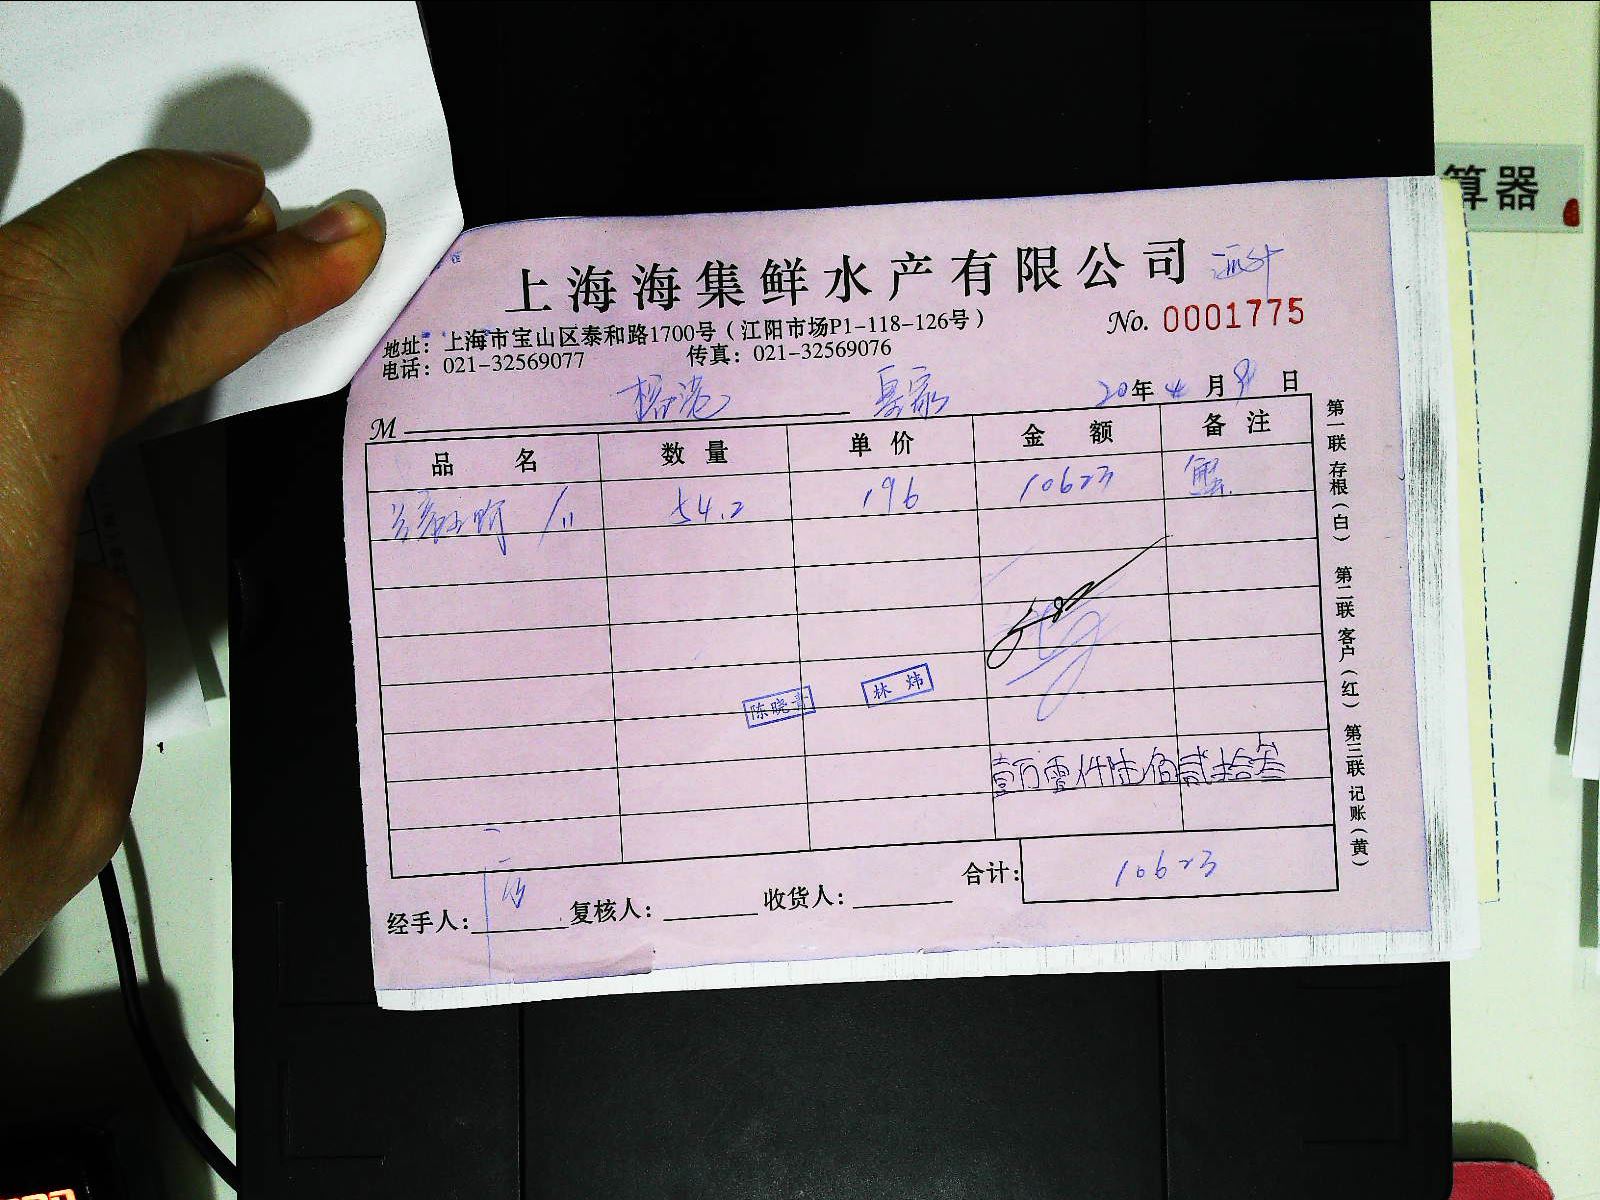 算器
上海海集鲜水产有限公司
No. 0001775
地址：上海市宝山区泰和路1700号（江阳市场P1-118-126号）
电话：021-32569077 传真：021-32569076
20年4月9日
M
品名 数量 单价 金额 备注
54.2 196 10623 蟹
陈晓青 林炜
壹万零仟陆佰贰拾叁
合计：10623
经手人： 复核人： 收货人：
第一联 存根（白） 第二联 客户（红） 第三联 记账（黄）